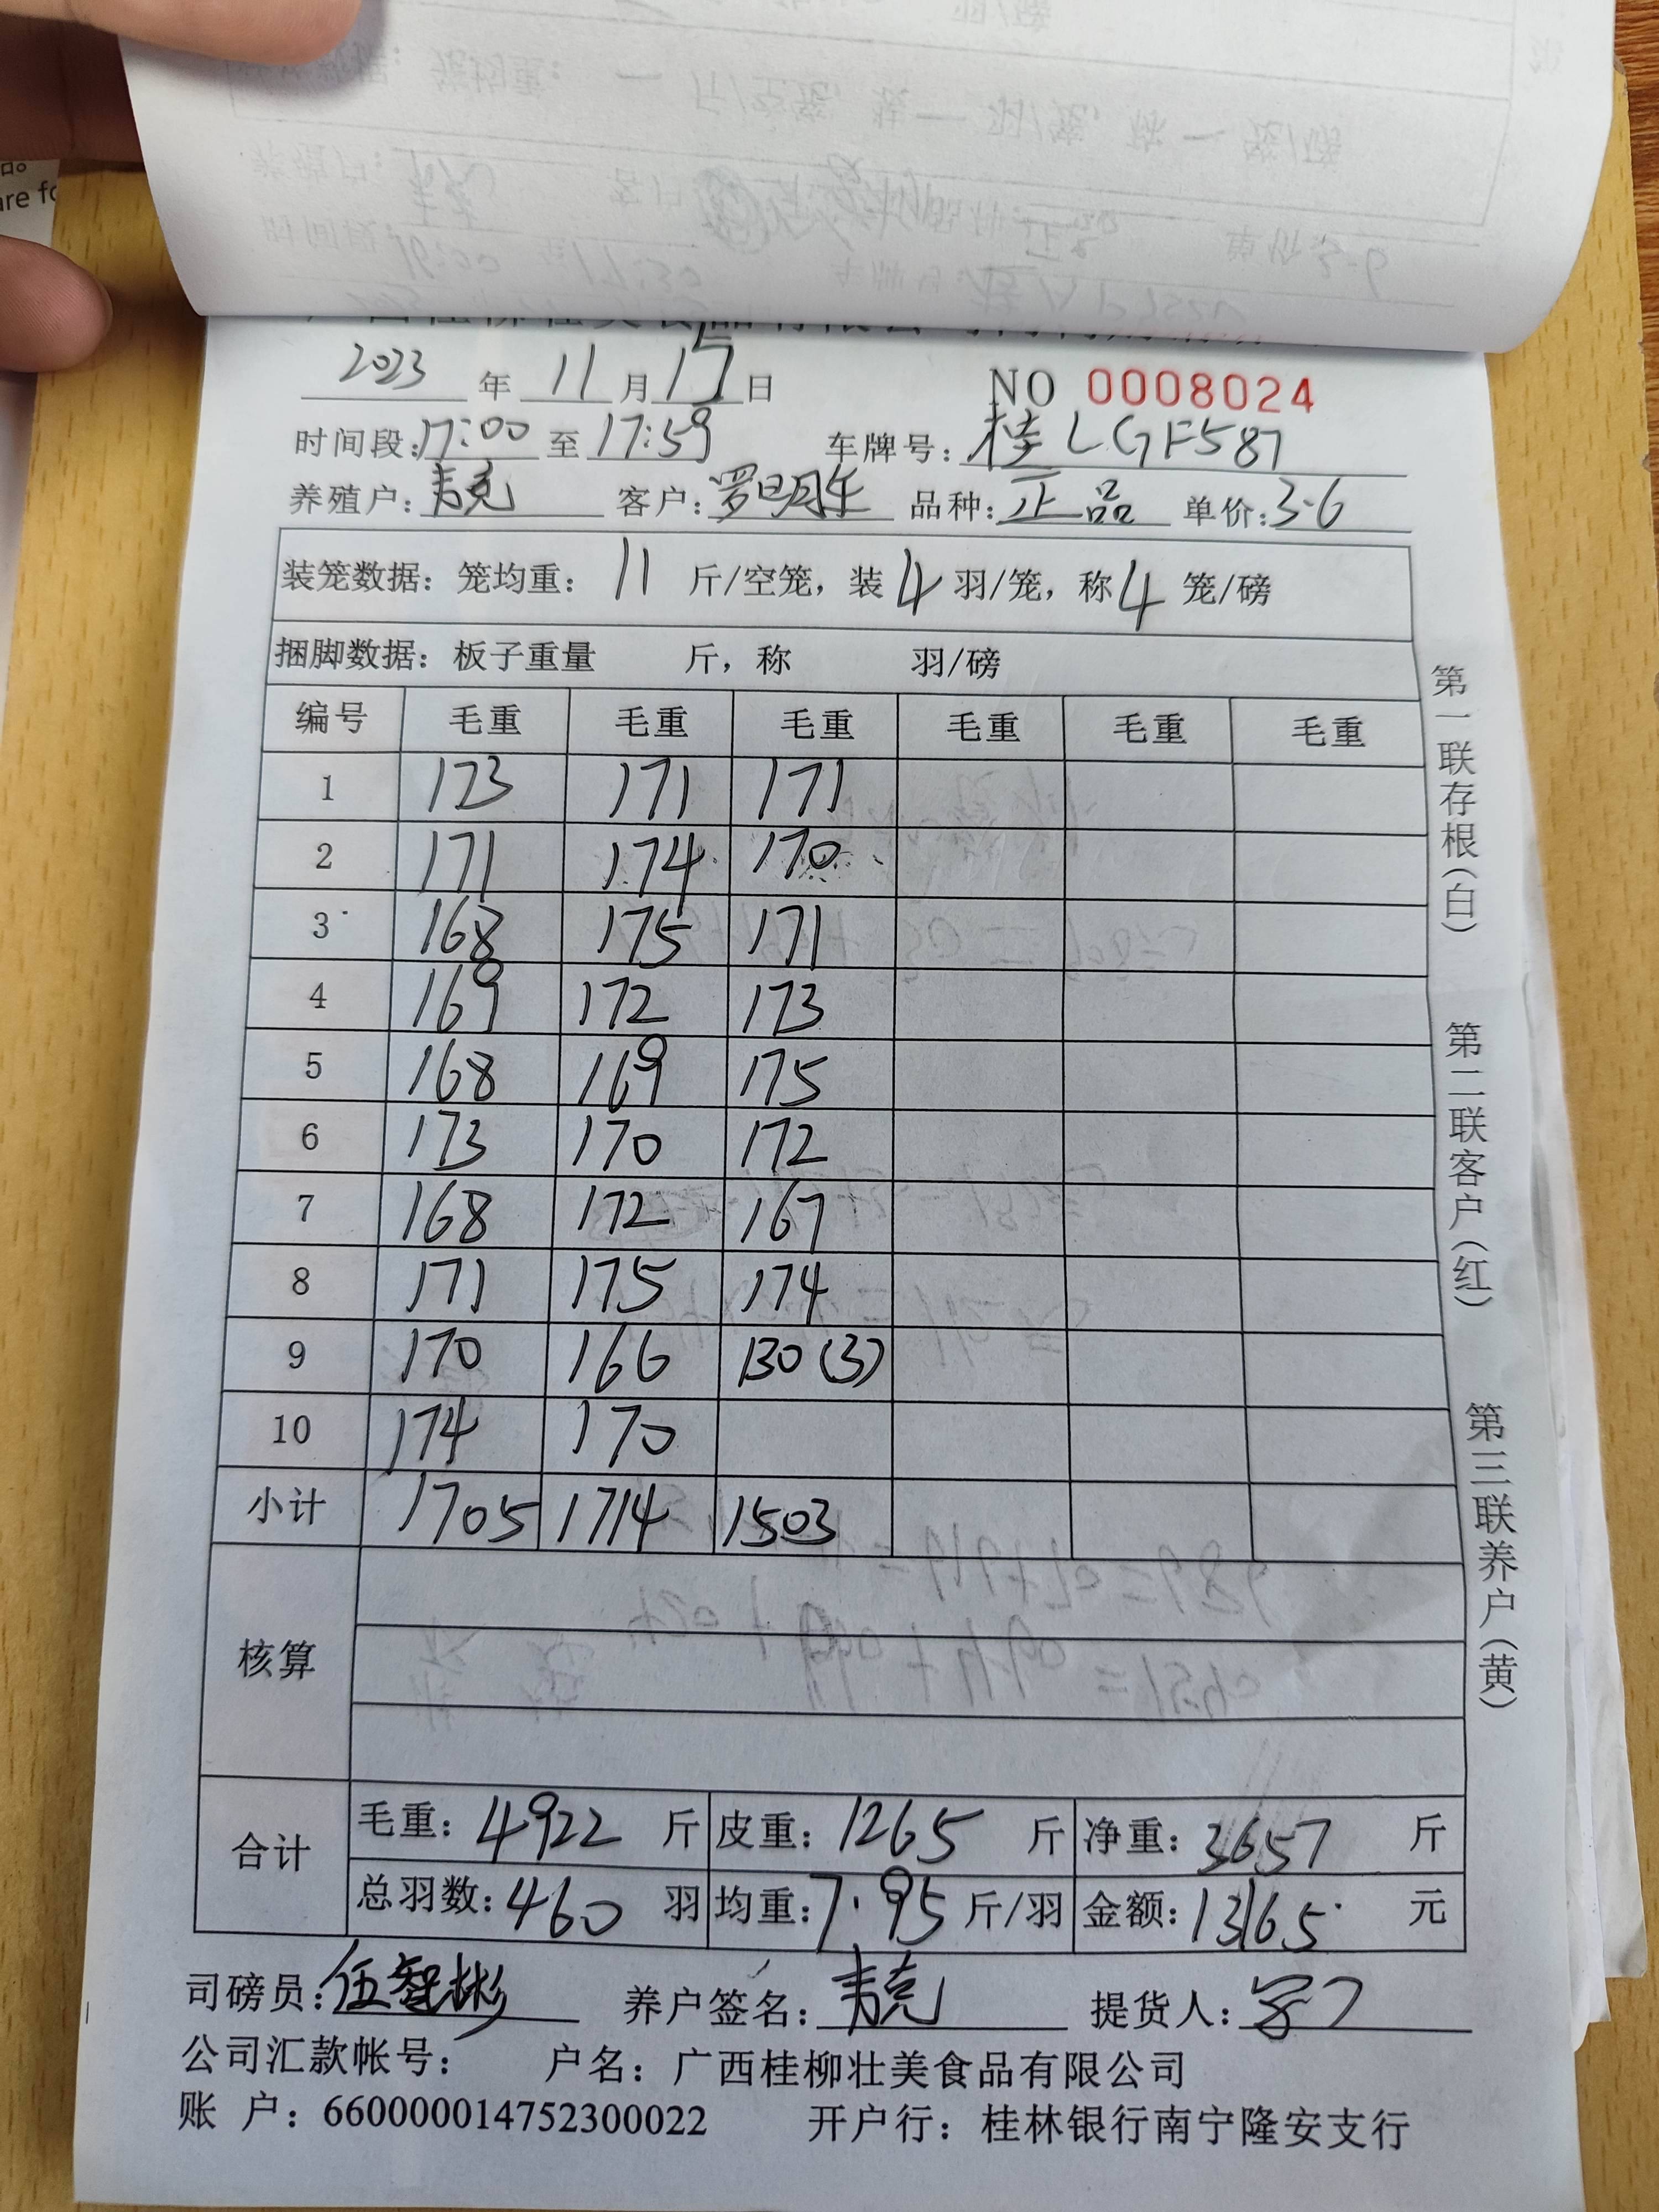 2023 年 11 月 15 日 NO 0008024
时间段:17:00 至 17:59 车牌号: 桂LGF587
养殖户: 韦克 客户: 罗明乐 品种: 正品 单价: 3.6
装笼数据: 笼均重: 11 斤/空笼, 装 4 羽/笼, 称 4 笼/磅
捆脚数据: 板子重量 斤, 称 羽/磅
编号 毛重 毛重 毛重 毛重 毛重 毛重
1 173 171 171
2 171 174 170
3 168 175 171
4 169 172 173
5 168 169 175
6 173 170 172
7 168 172 167
8 171 175 174
9 170 166 130(3)
10 174 170
小计 1705 1714 1503
核算
合计
毛重: 4922 斤 皮重: 1265 斤 净重: 3657 斤
总羽数: 460 羽 均重: 7.95 斤/羽 金额: 13165 元
司磅员: 伍智彬 养户签名: 韦克 提货人:
公司汇款帐号: 户名: 广西桂柳壮美食品有限公司
账 户: 660000014752300022 开户行: 桂林银行南宁隆安支行
第一联存根(白)
第二联客户(红)
第三联养户(黄)